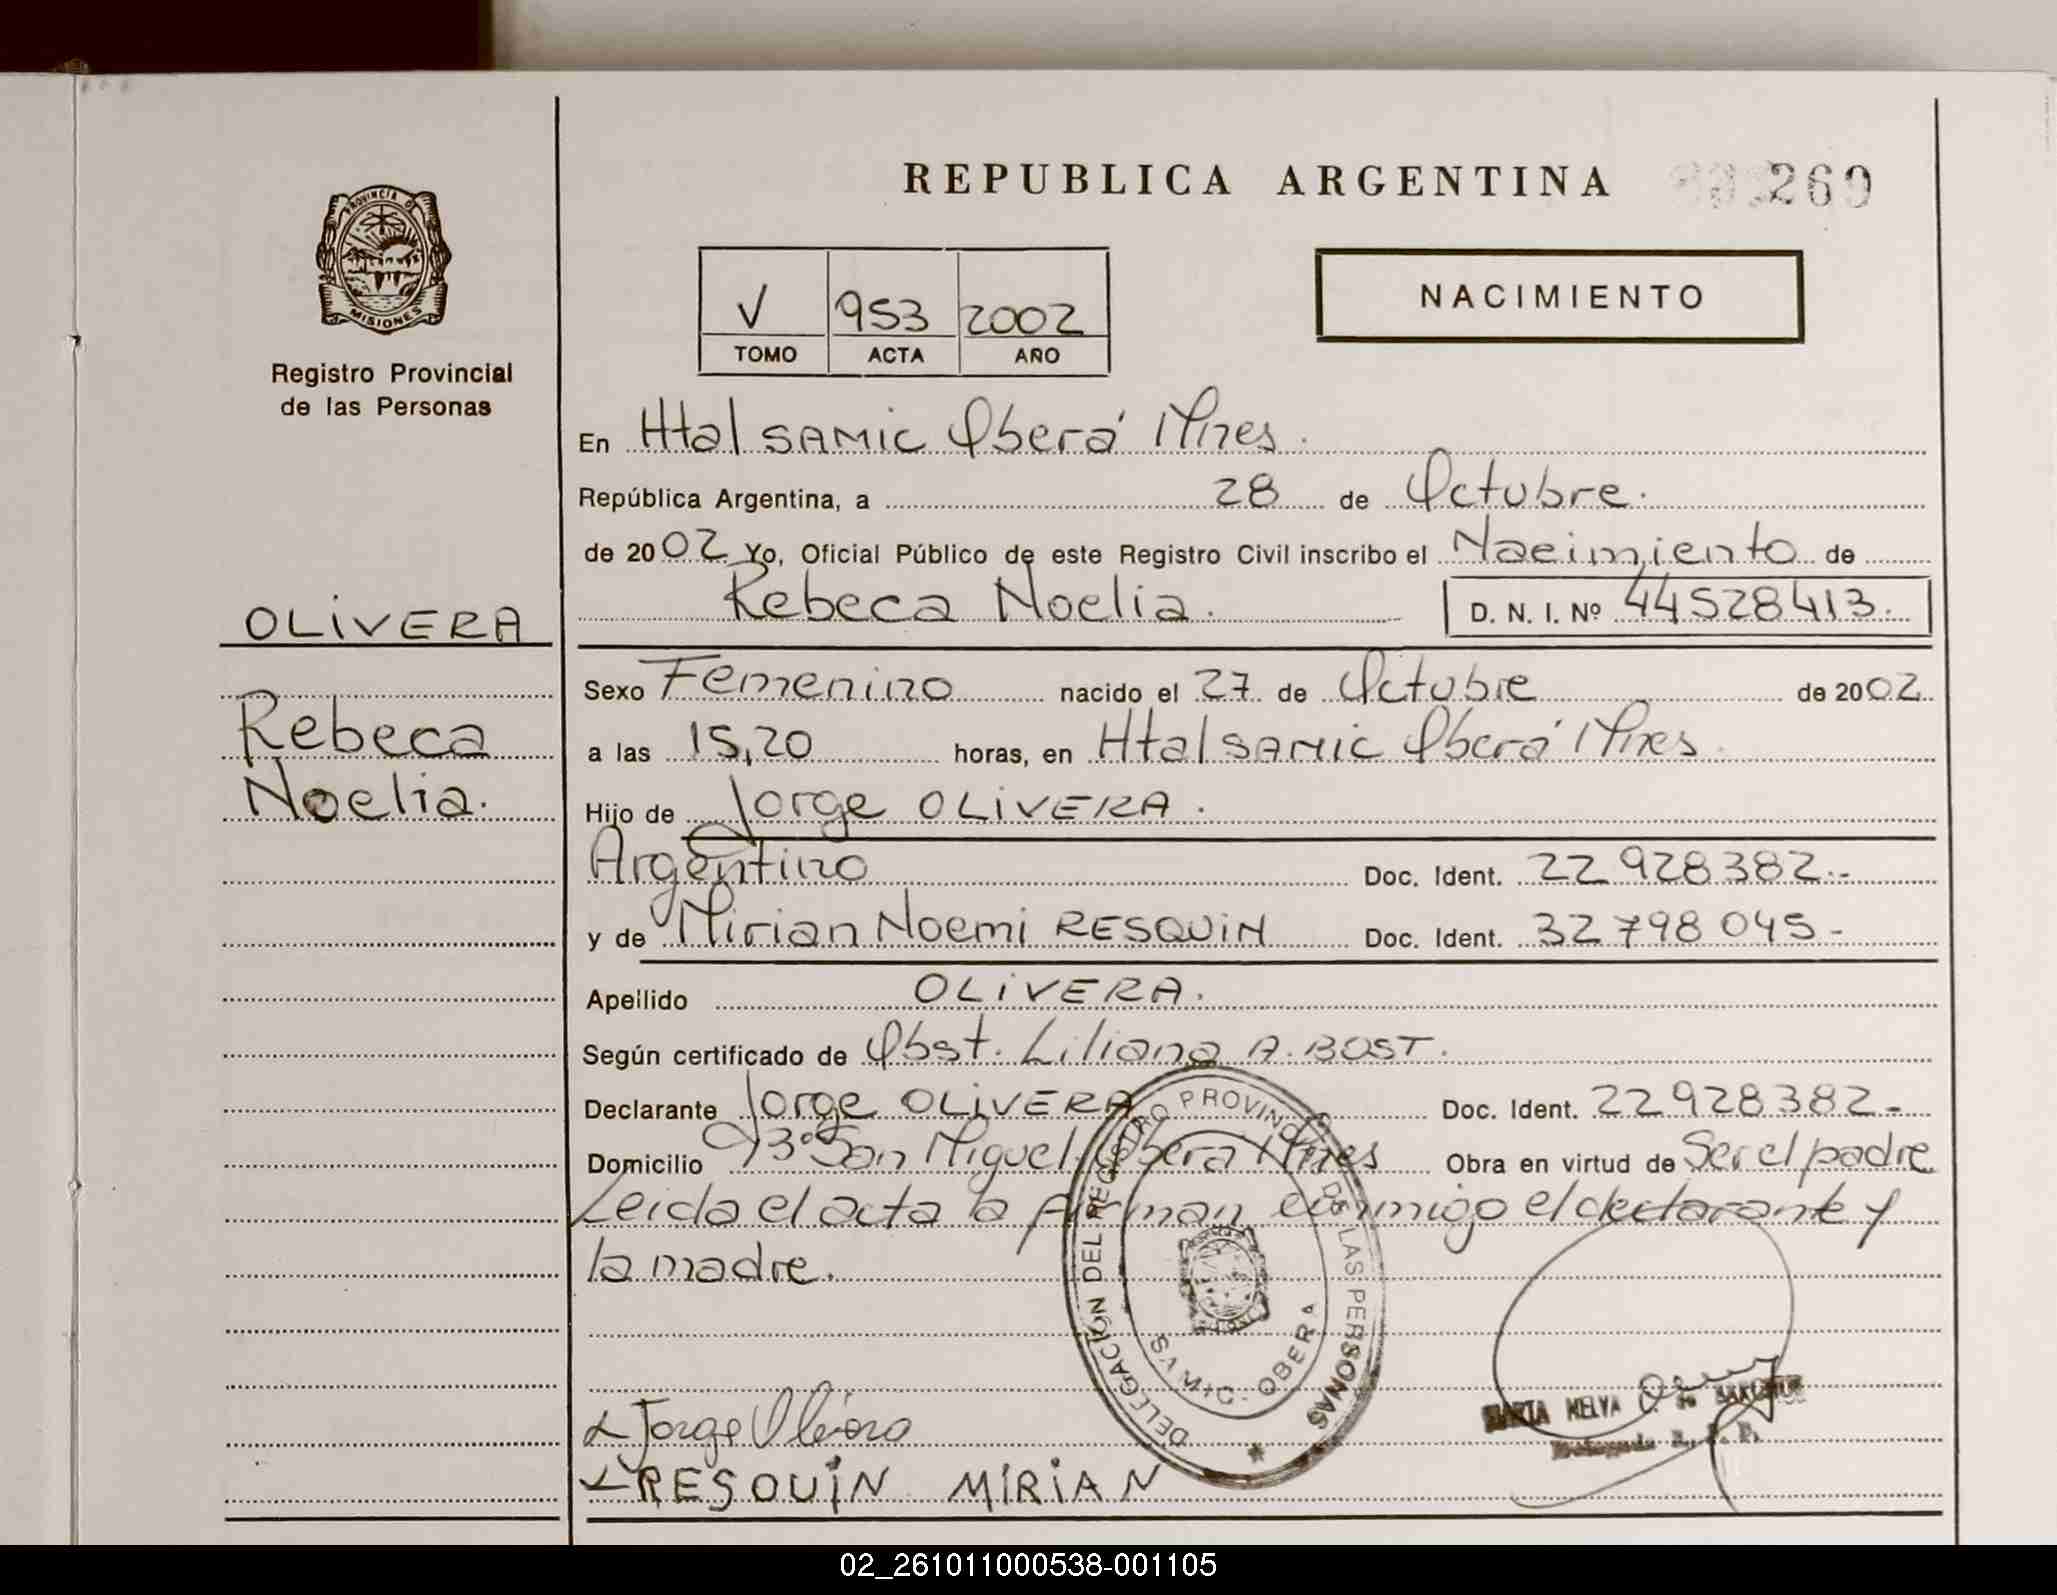 REPUBLICA ARGENTINA
269
PROVINCIA D
MISIONES
Registro Provincial
de las Personas
V 953 2002
TOMO ACTA AÑO
NACIMIENTO
En Htal SAMIC Oberá Mnes.
República Argentina, a 28 de Octubre.
de 2002 Yo, Oficial Público de este Registro Civil inscribo el Nacimiento de
Rebeca Noelia. D. N. I. Nº 44528413.
OLIVERA
Rebeca
Noelia.
Sexo Femenino nacido el 27 de Octubre de 2002
a las 15,20 horas, en Htal SAMIC Oberá Mnes.
Hijo de Jorge OLIVERA.
Argentino Doc. Ident. 22 928382.-
y de Mirian Noemi RESQUIN Doc. Ident. 32 798 045-
Apellido OLIVERA.
Según certificado de Obst. Liliana A. BOST.
Declarante Jorge OLIVERA Doc. Ident. 22 928382-
Domicilio San Miguel Oberá Mnes Obra en virtud de Ser el padre
Leida el acta la firman conmigo el declarante y
la madre.
DELEGACIÓN DEL REGISTRO PROVINCIAL DE LAS PERSONAS
SAMIC - OBERA
Jorge Olivera
RESQUIN MIRIAN
MARTA NELVA
02_261011000538-001105